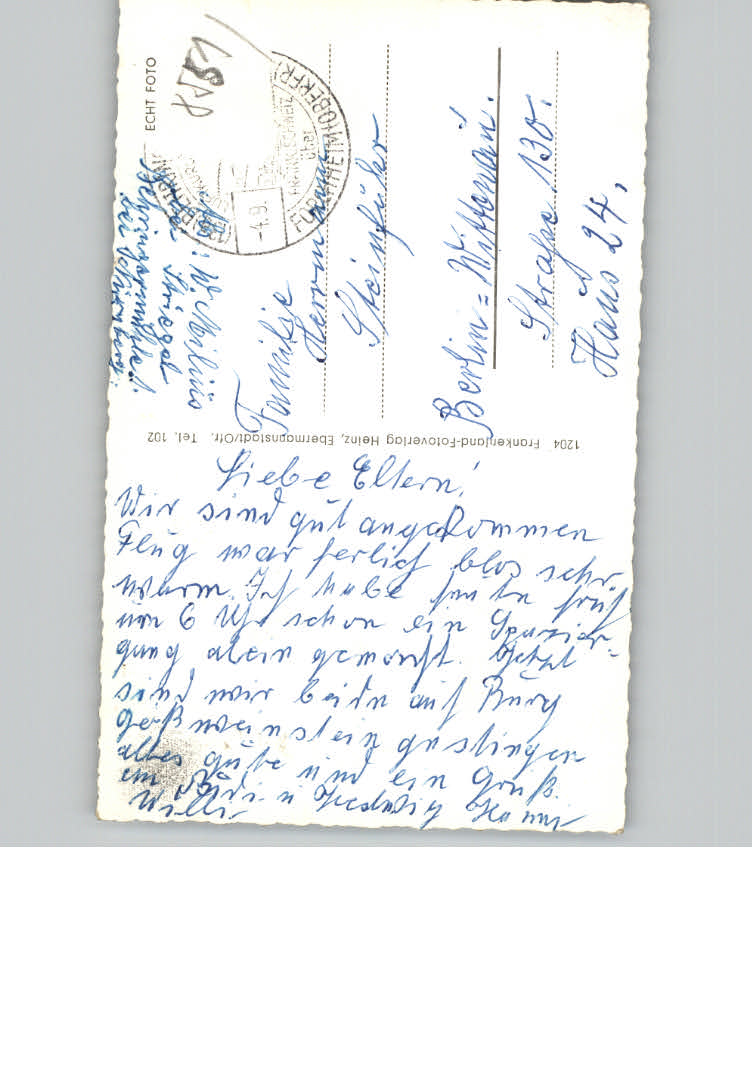 Liebe Eltern!
Wir sind gut angekommen
Flug war herlich blos sehr
warm. Ich habe heute früh
um 6 Uhr schon ein Spazier-
gang alein gemacht. Jetzt
sind wir beide auf Burg
Gößweinstein gestiegen
alles gute und ein Gruß
an u Hedwig Hanni
Willi
Familie
Herrmann
Steinführ
Berlin=Wittenau.
Straße 130.
Haus 24,
1204 Frankenland-Fotoverlag Heinz, Ebermannstadt/Ofr. Tel. 102
ECHT FOTO
FORCHHEIM (OBERFR)
über
FRÄNK. SCHWEIZ
-4.9.